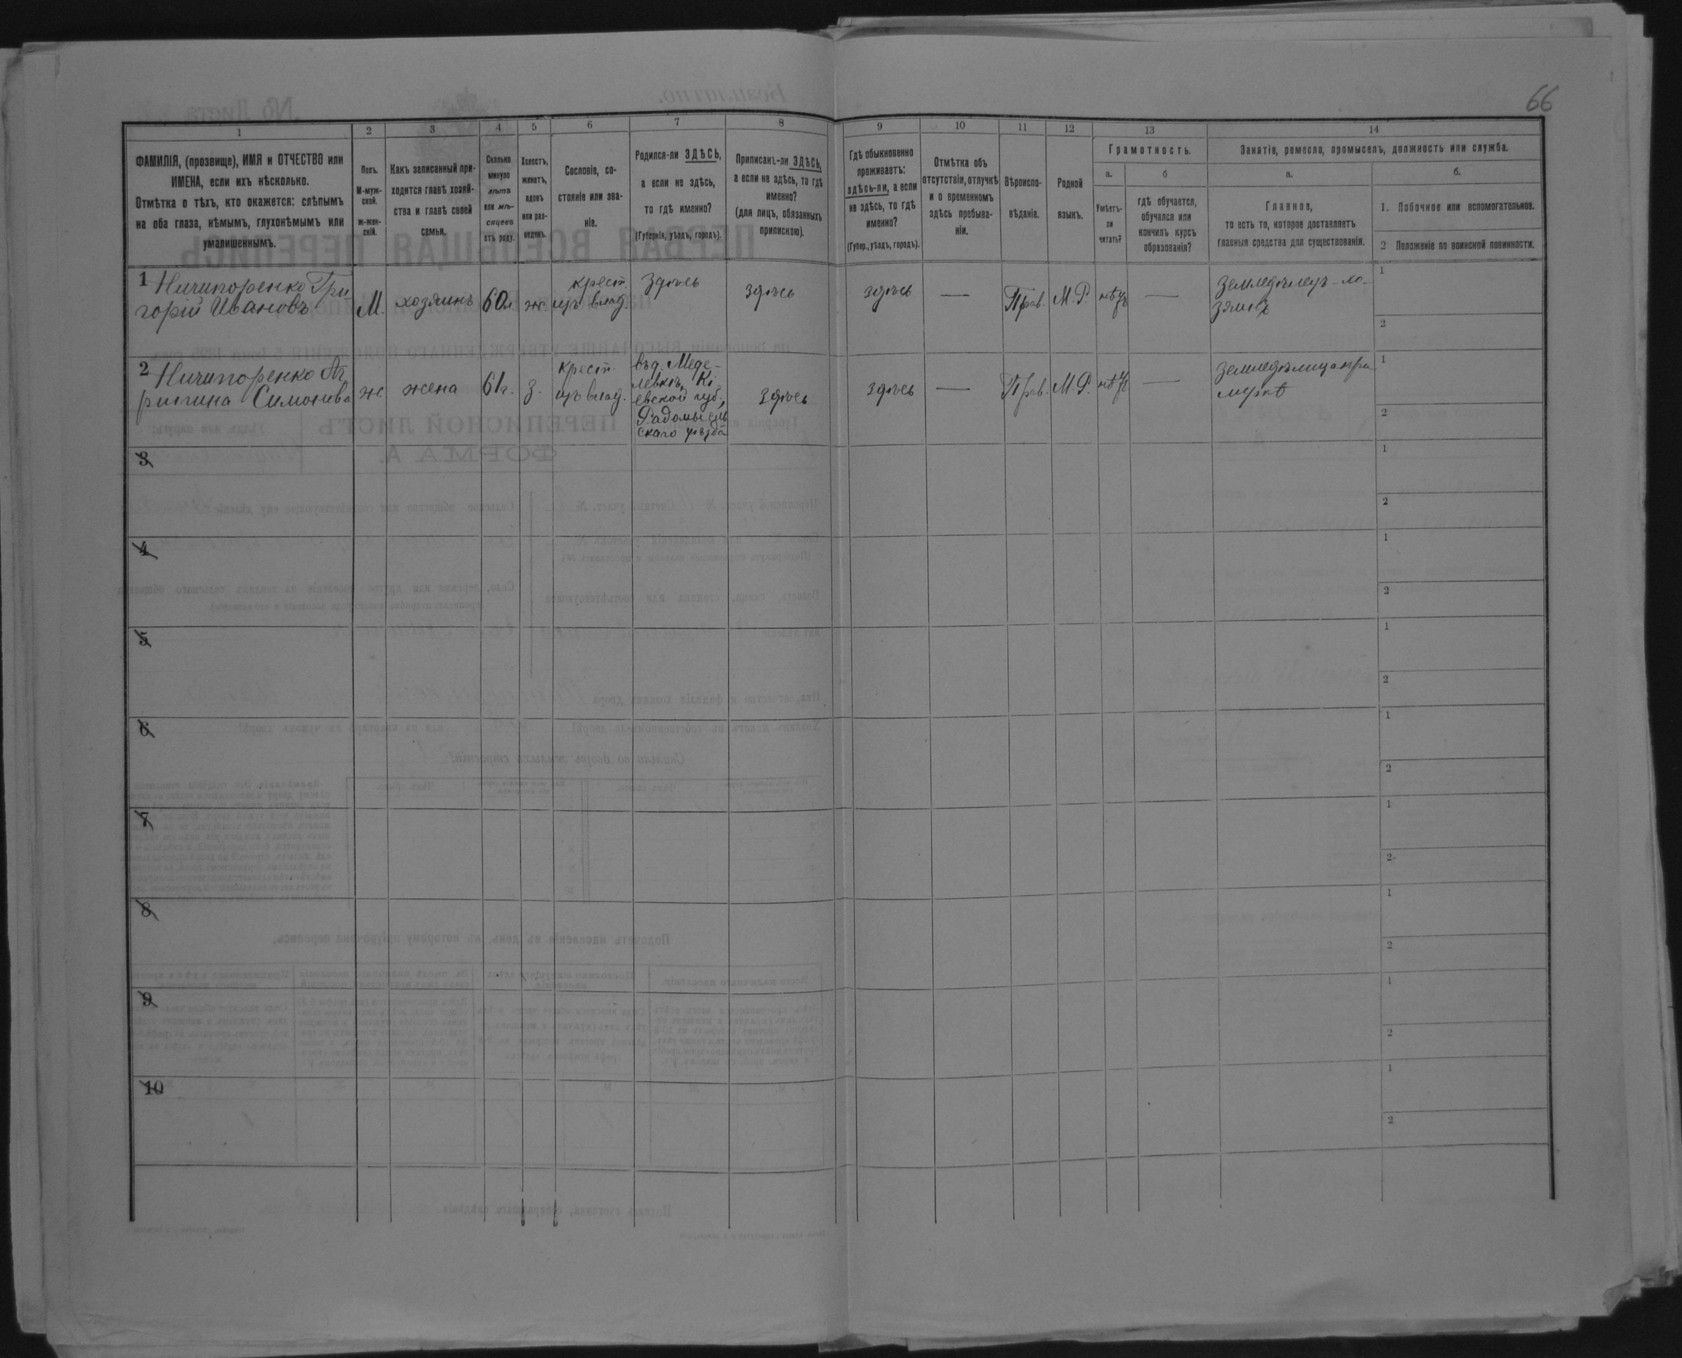 66
1 2 3 4 5 6 7 8 9 10 11 12 13 14
ФАМИЛІЯ, (прозвище), ИМЯ и ОТЧЕСТВО или
ИМЕНА, если ихъ нѣсколько.
Отмѣтка о тѣхъ, кто окажется: слѣпымъ
на оба глаза, нѣмымъ, глухонѣмымъ или
умалишеннымъ.
Полъ.
М-муж-
ской.
ж-жен-
скій.
Какъ записанный при-
ходится главѣ хозяй-
ства и главѣ своей
семьи.
Сколько
минуло
лѣтъ
или мѣ-
сяцевъ
отъ роду.
Холостъ,
женатъ,
вдовъ
или раз-
веденъ.
Сословіе, со-
стояніе или зва-
ніе.
Родился-ли ЗДѢСЬ,
а если не здѣсь,
то гдѣ именно?
(Губернія, уѣздъ, городъ).
Приписанъ-ли ЗДѢСЬ,
а если не здѣсь, то гдѣ
именно?
(для лицъ, обязанныхъ
припискою).
Гдѣ обыкновенно
проживаетъ:
здѣсь-ли, а если
не здѣсь, то гдѣ
именно?
(Губер., уѣздъ, городъ).
Отмѣтка объ
отсутствіи, отлучкѣ
и о временномъ
здѣсь пребыва-
ніи.
Вѣроиспо-
вѣданіе.
Родной
языкъ.
Грамотность.
а.
Умѣетъ-
ли
читать?
б
гдѣ обучается,
обучался или
кончилъ курсъ
образованія?
Занятіе, ремесло, промыселъ, должность или служба.
а.
Главное,
то есть то, которое доставляетъ
главныя средства для существованія.
б.
1. Побочное или вспомогательное.
2 Положеніе по воинской повинности.
1 Ничипоренко Гри
горій Ивановъ
М.
хозяинъ
60л
ж.
крест.
изъ влад.
Здѣсь
здѣсь
здѣсь
—
Прав.
М. Р.
нѣтъ
—
земледѣлецъ-хо-
зяинъ
1
2
2 Ничипоренко
Симонова
ж.
жена
61г.
з.
крест.
изъ влад.
Кі-
евской губ.,
Радомысль
скаго уѣзда
здѣсь
здѣсь
—
Прав.
М. Р.
нѣтъ
—
1
2
3
1
2
4
1
2
5
1
2
6
1
2
7
1
2
8
1
2
9
1
2
10
1
2